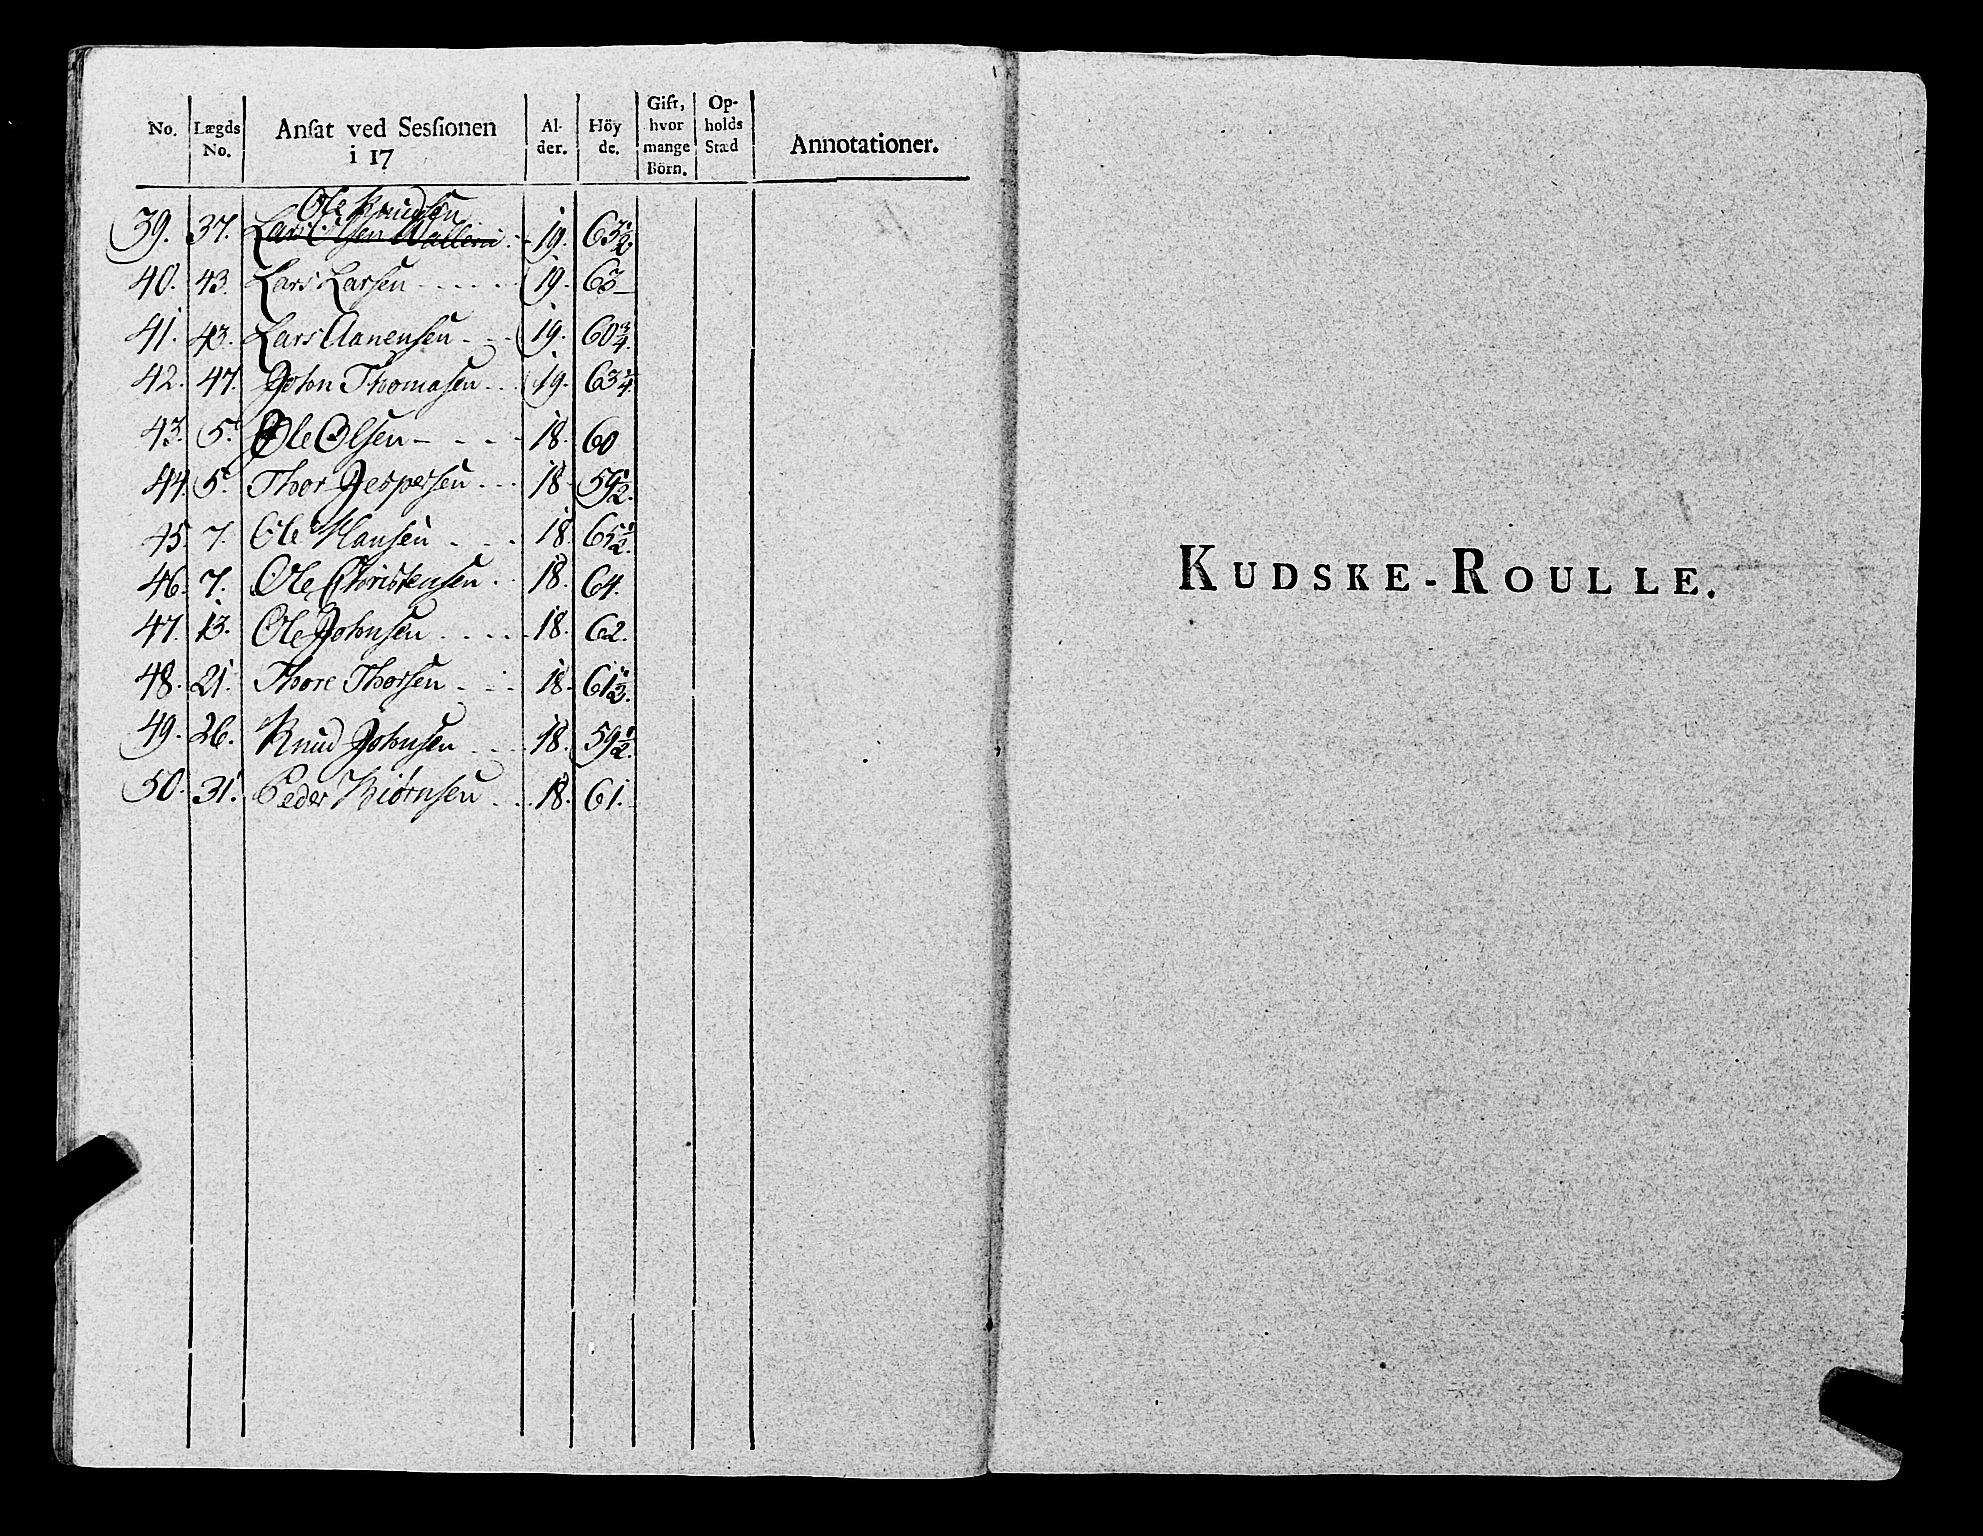 No. Lægds No. Ansat ved Sessionen i 17 Al-der. Höy de. Gift, hvor mange Börn. Op-holds Stæd Annotationer.
Ole Knudsen
39. 37. Lars Olsen - 19. 63½
40. 43. Lars Larsen - - - - - 19. 63
41. 43. Lars Aanensen - - - 19. 60¾
42. 47. John Thomasen - - 19. 63¼
43. 5. Ole Olsen - - - - 18. 60
44. 5. Thor Jespersen - - - 18 59½
45. 7. Ole Hansen - - - 18. 61½
46. 7. Ole Christensen - - 18. 64.
47. 13. Ole Johnsen - - - - 18. 62.
48. 21. Thore Thorsen - - - 18. 61½
49. 26. Knud Johnsen - - - 18. 59½
50. 31. Peder Biörnsen - - 18. 61.
KUDSKE-ROULLE.